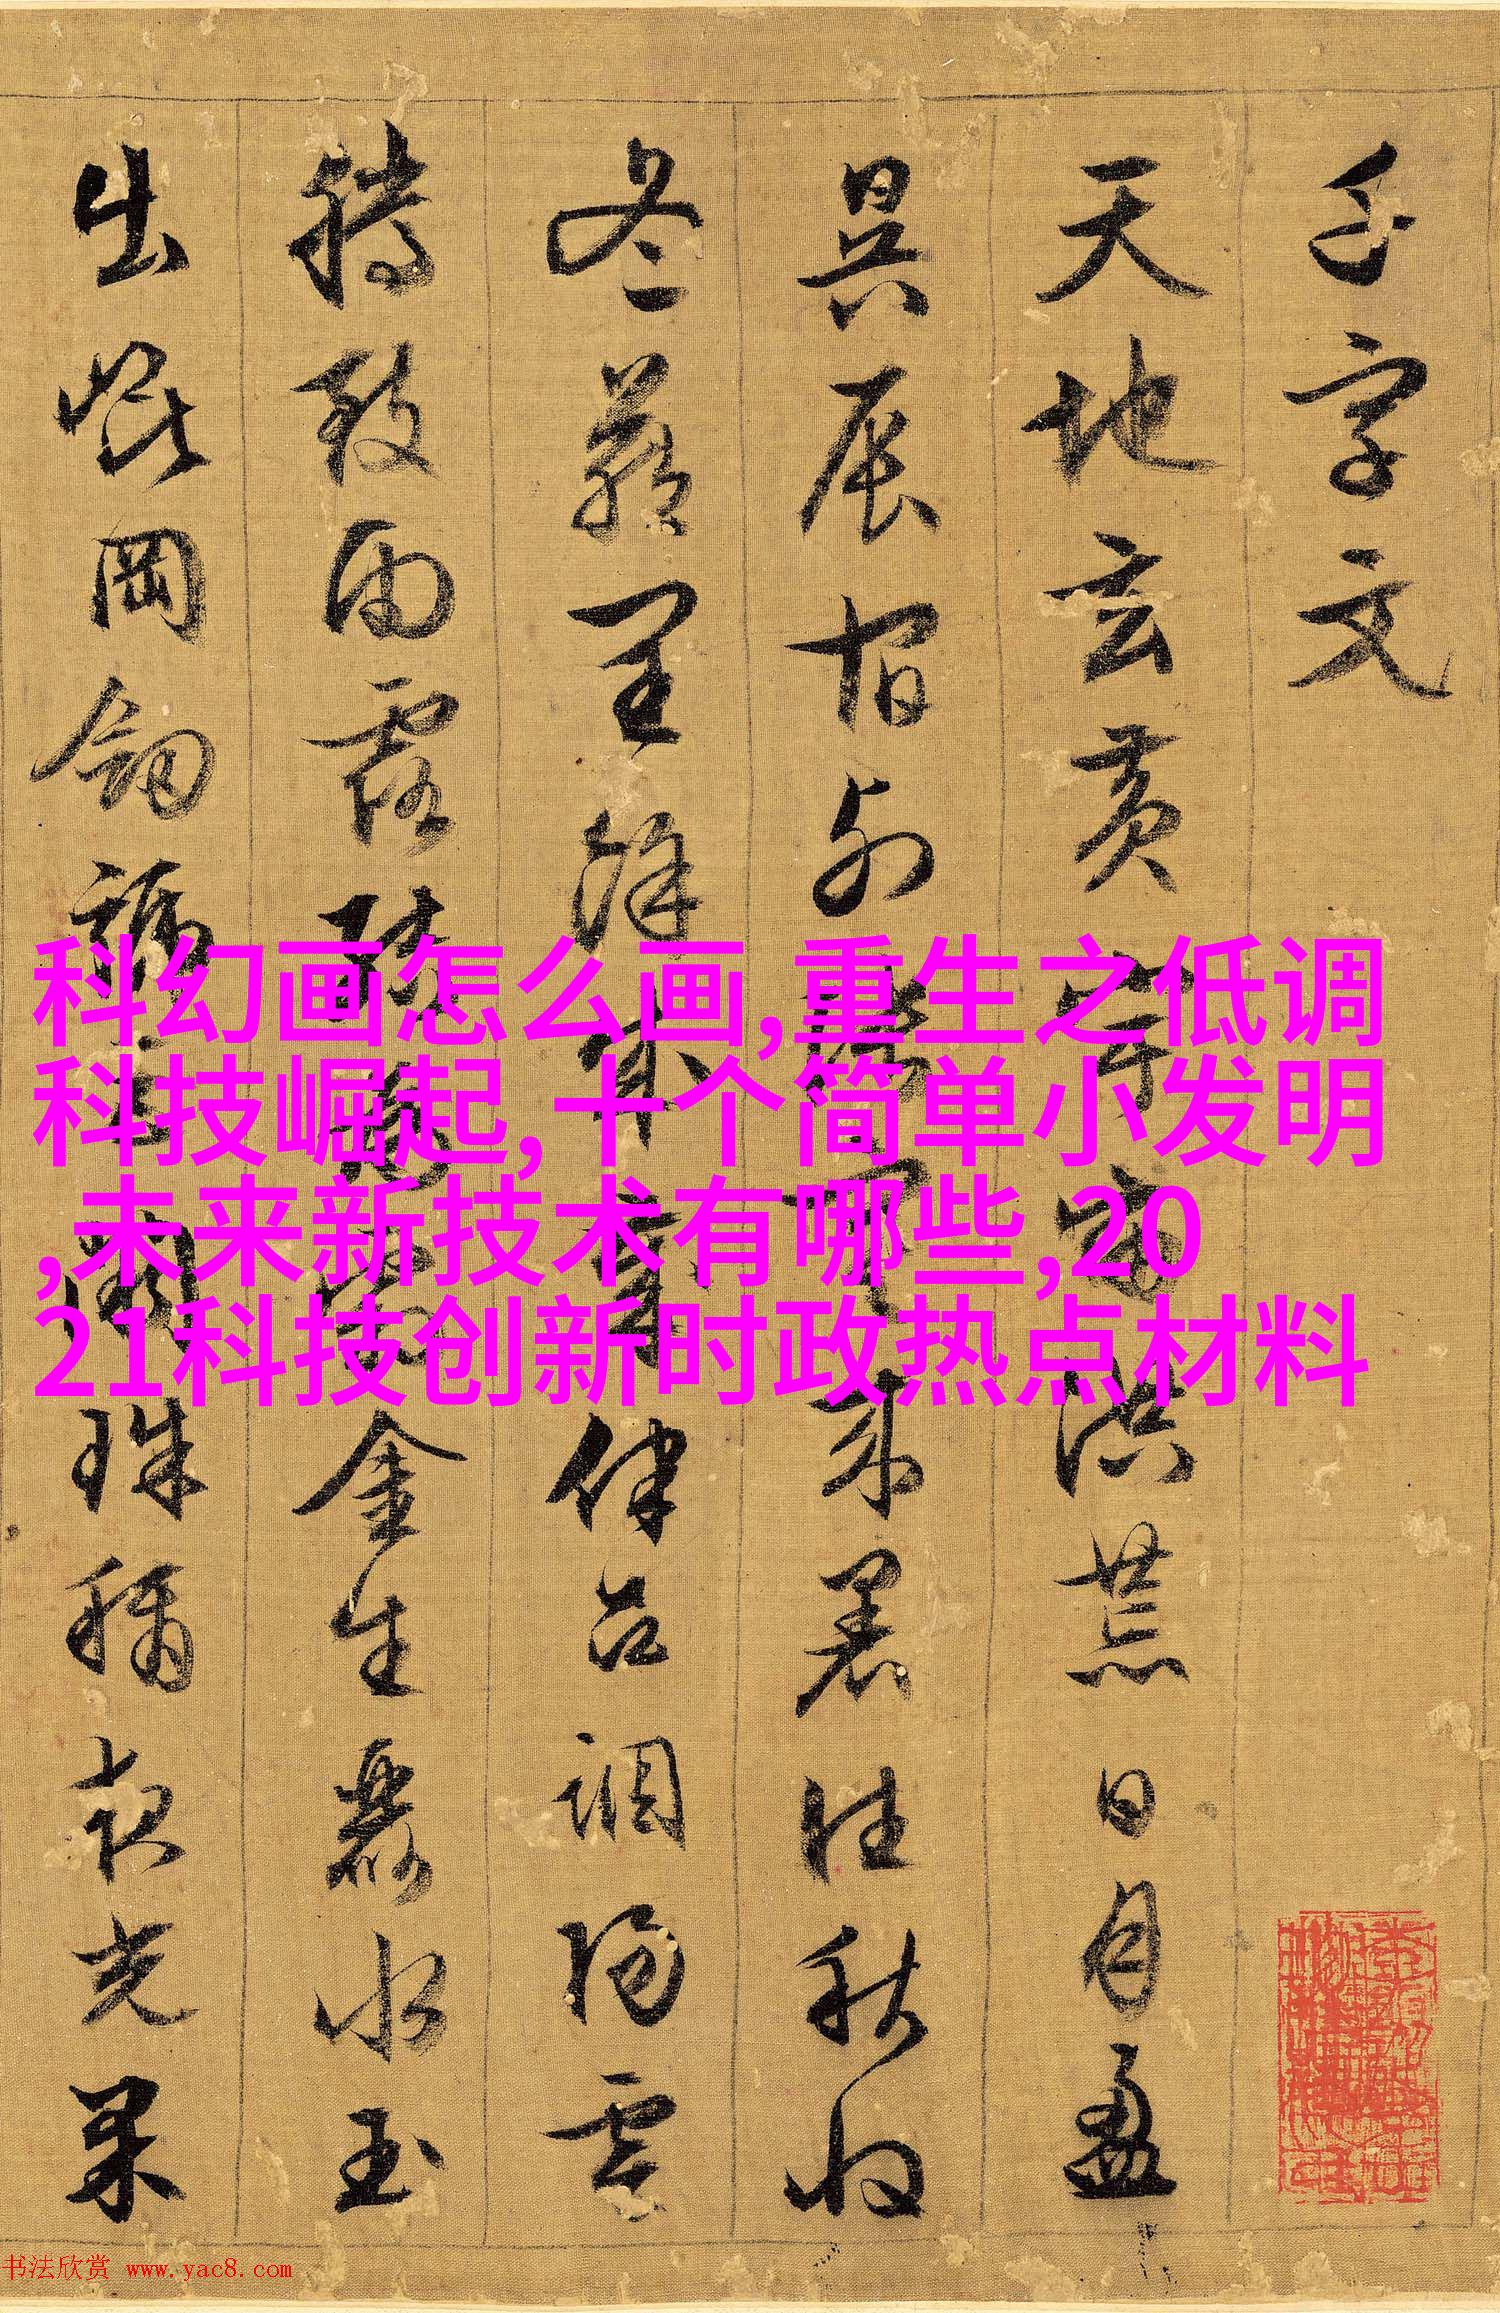 千字文
天地玄黄宇宙洪荒日月盈
昃辰宿列張寒来暑往秋收
冬蔵閏餘成歲律吕調陽雲
騰致雨露結為霜金生麗水玉
出崐岡劒號巨闕珠稱夜光果
科幻画怎么画,重生之低调
科技崛起,十个简单小发明
,未来新技术有哪些,20
21科技创新时政热点材料
书法欣赏 www.yac8.com